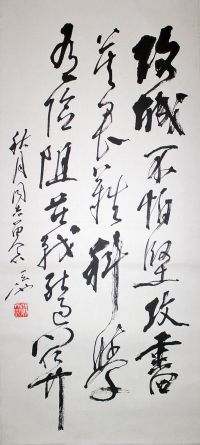 攻城不怕坚攻书
莫畏难科学
有险阻苦战能过关
秋月同志